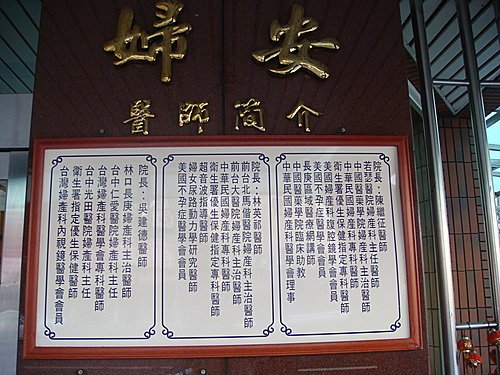 安婦
醫師簡介
院長：陳繼征醫師
若瑟醫院婦產科主任醫師
中國醫藥學院婦產科主治醫師
中華民國婦產科專科醫師
衛生署優生保健指定專科醫師
美國婦產科腹腔鏡學會會員
美國不孕症醫學會會員
長庚區域醫療網講師
中國醫藥學院臨床助教
中華民國婦產科醫學會理事
院長：林英祁醫師
前台北馬偕醫院婦產科主治醫師
前台大醫院婦產科主治醫師
中華民國婦產科專科醫師
衛生署優生保健指定專科醫師
超音波指導醫師
婦女尿路動力學研究醫師
美國不孕症醫學會會員
院長：吳建德醫師
林口長庚婦產科主治醫師
台中仁愛醫院婦產科主任
台灣婦產科醫學會專科醫師
台中光田醫院婦產科主任
衛生署指定優生保健醫師
台灣婦產科內視鏡醫學會會員